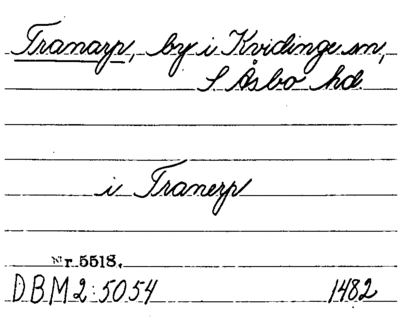 Tranarp, by i Kvidinge sn,
S Åsbo hd
i Tranerp
Nr. 5518.
DBM 2:5054 1482